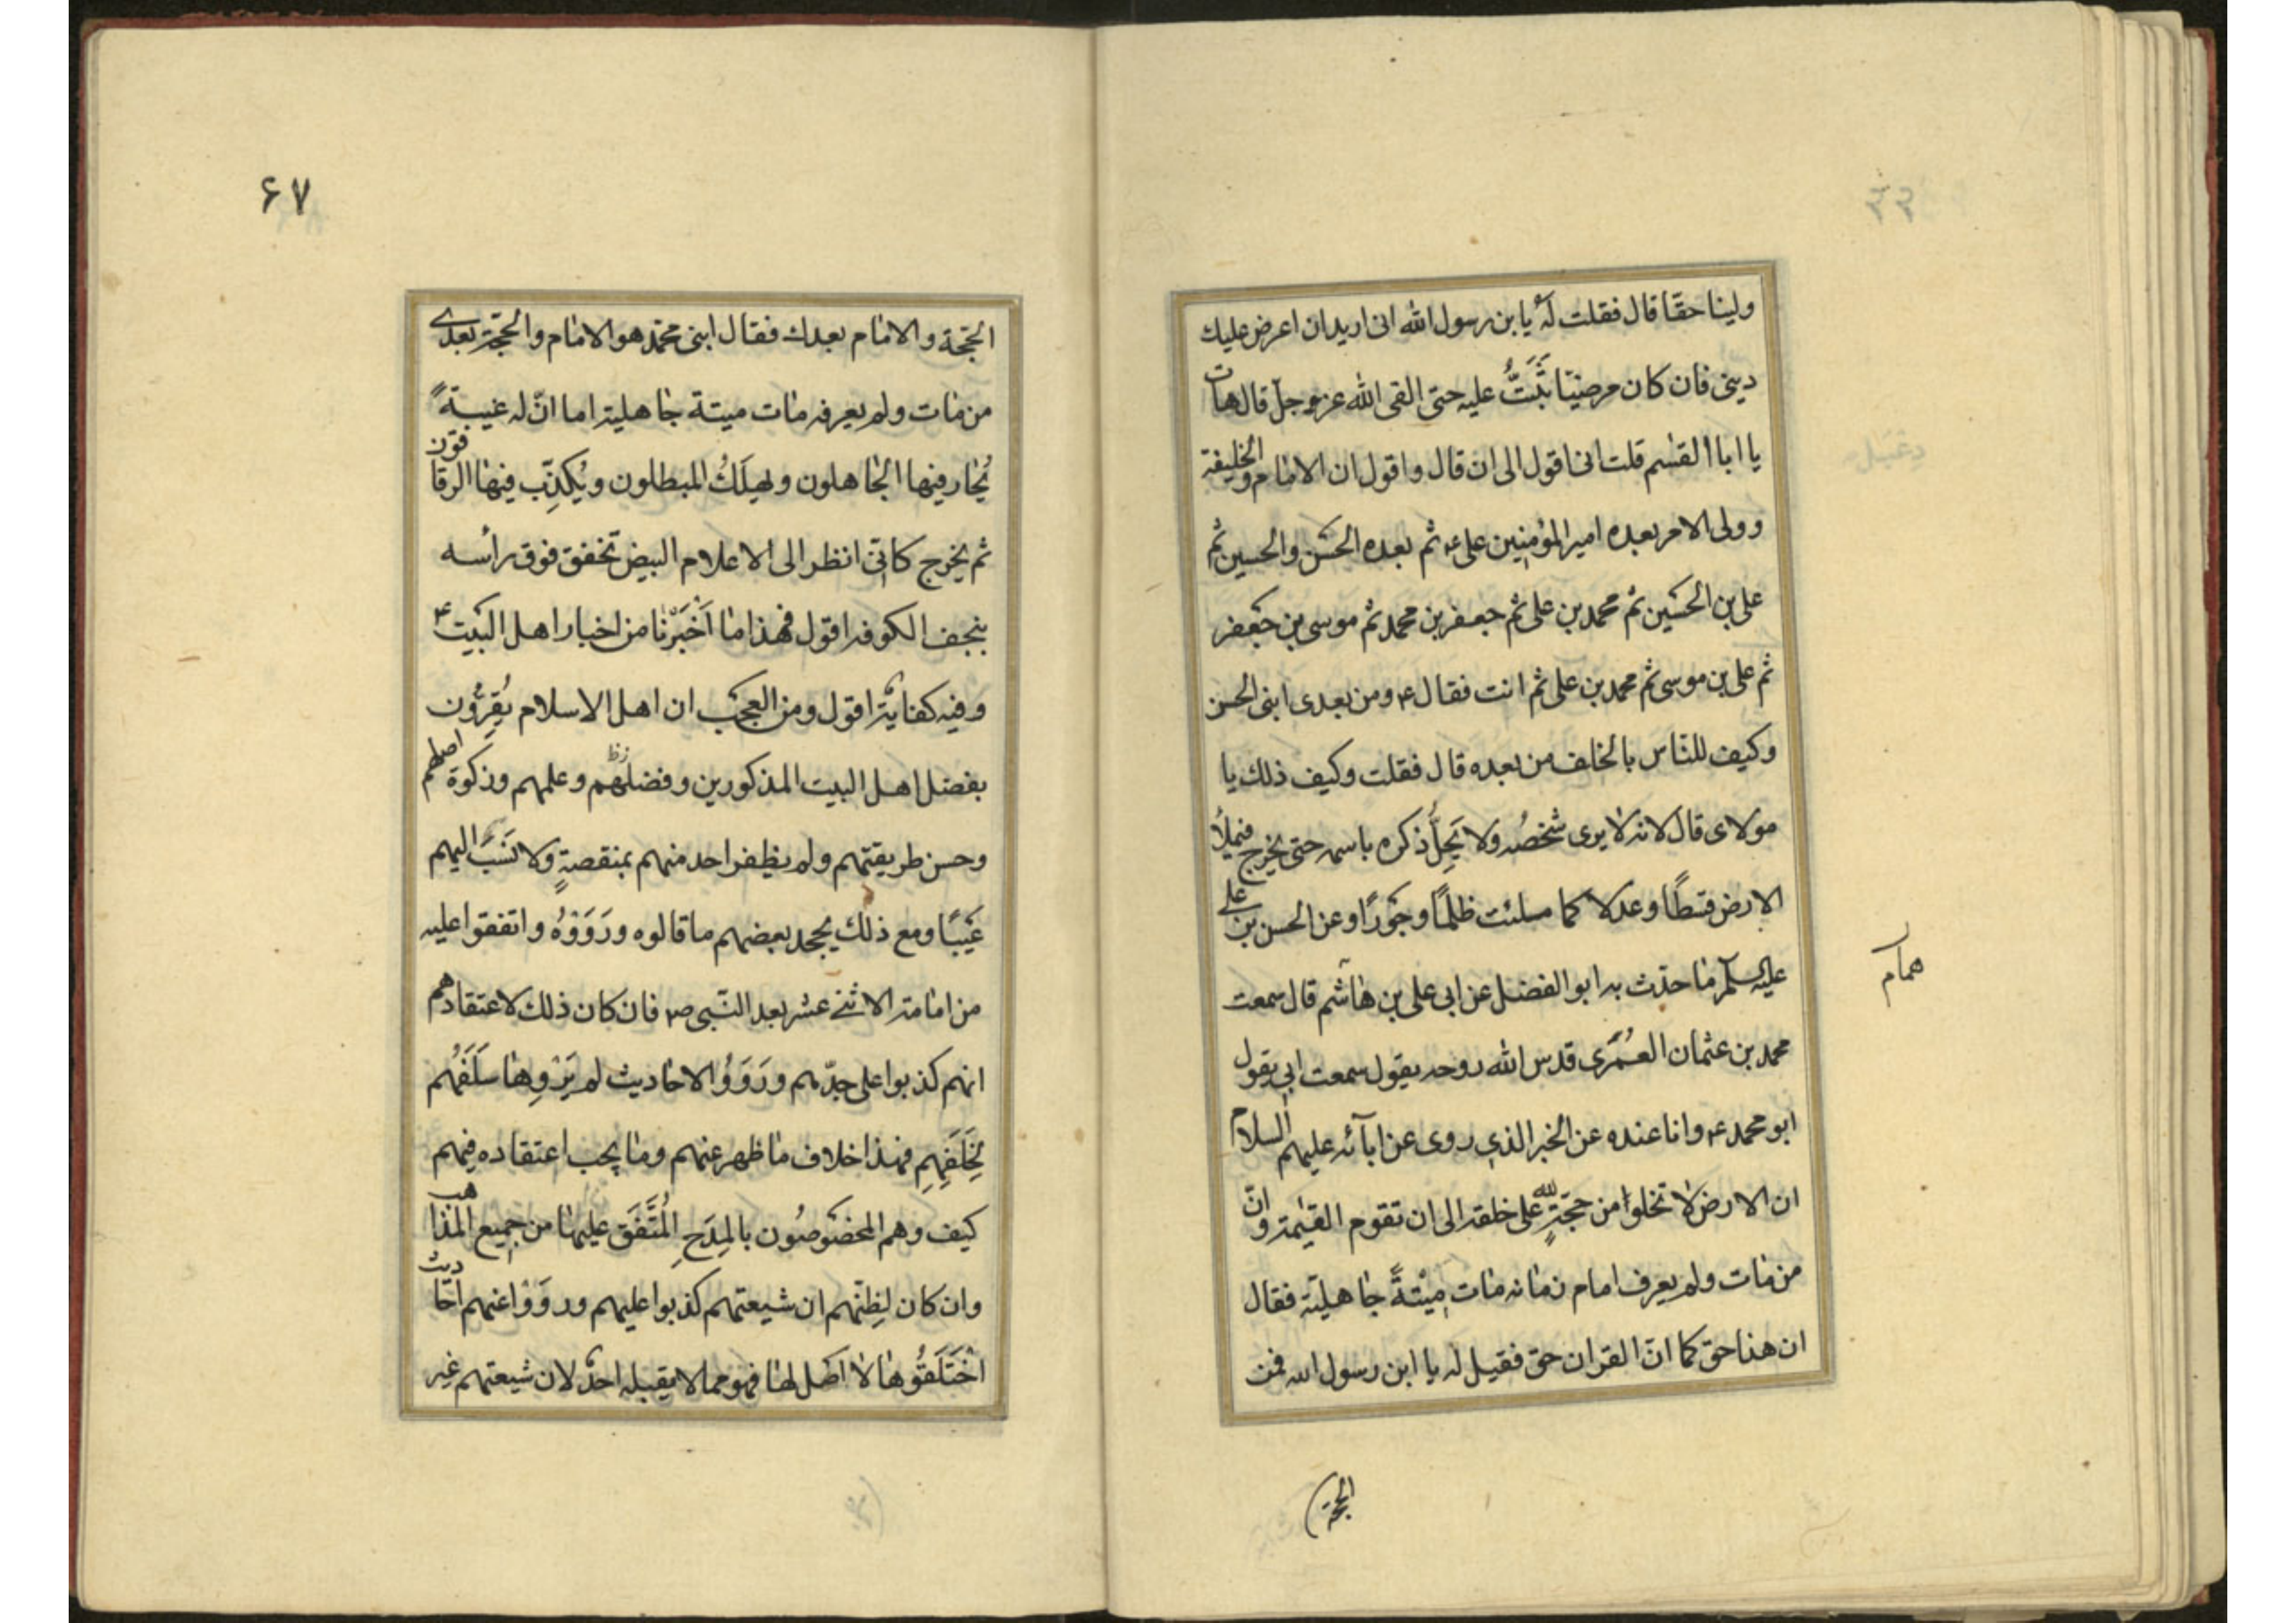 ولينا حقّا قال فقلت لهُ يا بن رسول الله انى اريد ان اعرض عليك
دينى فان كان مرضيّنا ثَبَتُّ عليه حتى القى الله عز و جلّ قال هات
يا ابا القسٰم قلت انى اقول الى ان قال و اقول ان الامام و الخليفة
و ولى الامر بعده امير المؤمنين على ع ثم بعده الحسَن و الحسين ثم
على بن الحسَين ثم محمد بن على ثم جعفر بن محمد ثم موسى بن جعَفر
ثم على بن موسى ثم محمد بن على ثم انت فقال ع و من بعدى ابنى الحسن
و كيف للنّاس بالخلف من بعده قال فقلت و كيف ذلك يا
مولاى قال لانه لا يرى شخصُه و لا يَحِلُّ ذكره باسمه حتى يخرج فيملأُ
الارض قسطًا و عدلا كما ملئت ظلمًا و جَورًا و عن الحسن بن على
عليه السلم ما حدّث به ابو الفضل عن ابى على بن هاشم قال سمعت
همام
محمد بن عثمان العُمَرى قدس الله روحه يقول سمعت ابى يقول
ابو محمد ع و انا عنده عن الخبر الذى روى عن ابآئه عليهم السلام
ان الارض لا تخلوا من حجّةٍ لله على خلقه الى ان تقوم القيٰمة و انّ
من مات و لم يعرف امام زمانه مات مِيْتةً جاهليّة فقال
ان هذا حق كما انّ القران حق فقيل له يا ابن رسول الله فمن
الحجّة
٦٧
الحجّة و الامام بعدك فقال ابنى محمّد هو الامام و الحجّة بعدى
من مات و لم يعرفه مات ميتة جاهلية اما انّ له غيبةً
يُحٰار فيها الجاهلون و يهلَكُ المبطلون و يُكذِّب فيها الوقاتون
ثم يخرج كانّى انظر الى الاعلام البيض تخفق فوق رأسه
بنجف الكوفه اقول فهذا ما اَخْبَرْنا من اخبار اهل البَيت ع
و فيه كفاية اقول و من العجَب ان اهل الاسلام يُقِرُّون
بفضل اهل البيت المذكورين و فضلهم و علمهم و زكوة اصلهم
و حسن طريقتهم و لم يظفر احد منهم بمنقصةٍ و لا نَسَبَ اليهم
عَيبًا و مع ذلك يجحد بعضهم ما قالوه و رَوَوْهُ و اتفقوا عليه
من امامة الاثنے عشر بعد النّبى ص فان كان ذلك لاعتقادهم
انهم كذبوا على جدّهم و رَوَوُا الاحاديث لم يَرْوِها سَلَفُهم
لِخَلَفِهِم فهذا خلاف ما ظهر عنهم و ما يجب اعتقاده فيهم
كيف و هم المخصَوصُون بالمِدَحِ المُتَّفَق عليها من جميع المذاهب
و ان كان لِظنّهم ان شيعتهم كذبوا عليهم و رَوَوْا عنهم احاديث
اخْتَلَقُوها لا اَصَل لها فهو مما لا يقبله احدٌ لان شيعتهم غير